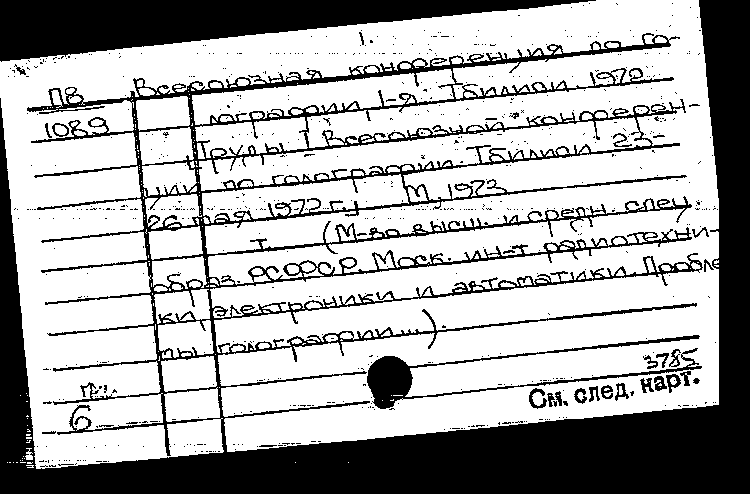 1.
П8 Всесоюзная конференция по го-
1089 лографии, 1-я. Тбилиси. 1972
Труды I Всесоюзной конферен-
ции по голографии. Тбилиси 23-
26 мая 1972 г. М, 1973
т. (М-во высш. и средн. спец.
образ. РСФСР. Моск. ин-т радиотехни-
ки, электроники и автоматики. Пробле
мы голографии...).
3785
6
См. след. карт.